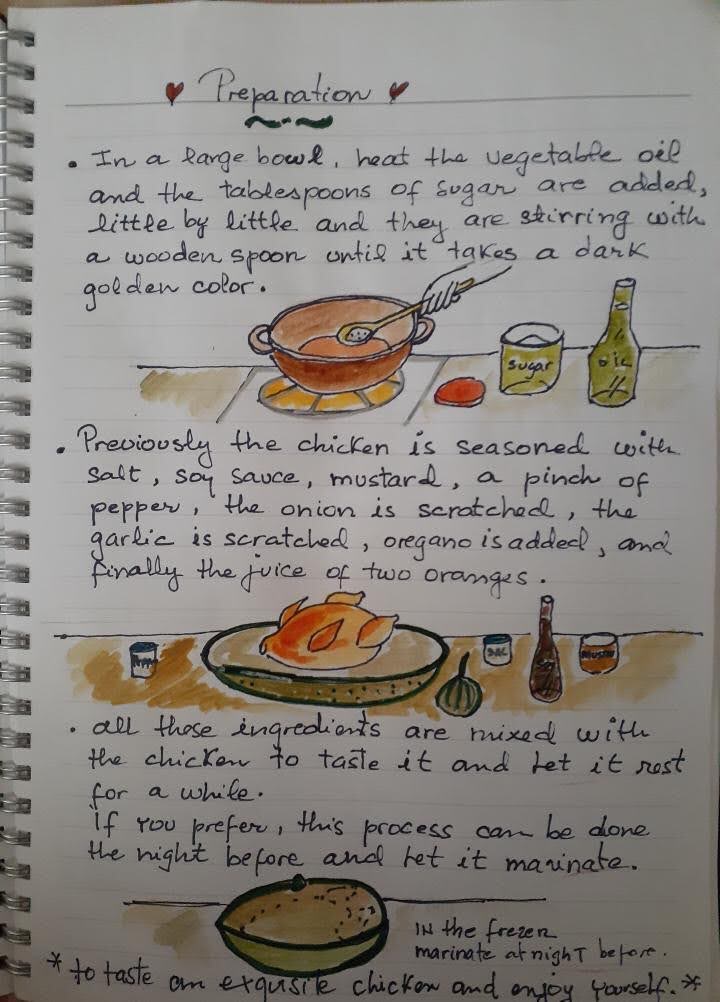 Preparation
• In a large bowl, heat the vegetable oil
and the tablespoons of sugar are added,
little by little and they are stirring with
a wooden spoon until it takes a dark
golden color.
Sugar
OIL
• Previously the chicken is seasoned with
salt, soy sauce, mustard, a pinch of
pepper, the onion is scrotched, the
garlic is scratched, oregano is added, and
finally the juice of two oranges.
• all those ingredients are mixed with
the chicken to taste it and let it rest
for a while.
If you prefer, this process can be done
the night before and let it marinate.
IN the frezer
marinate at night before.
* to taste an exquisite chicken and enjoy yourself. *